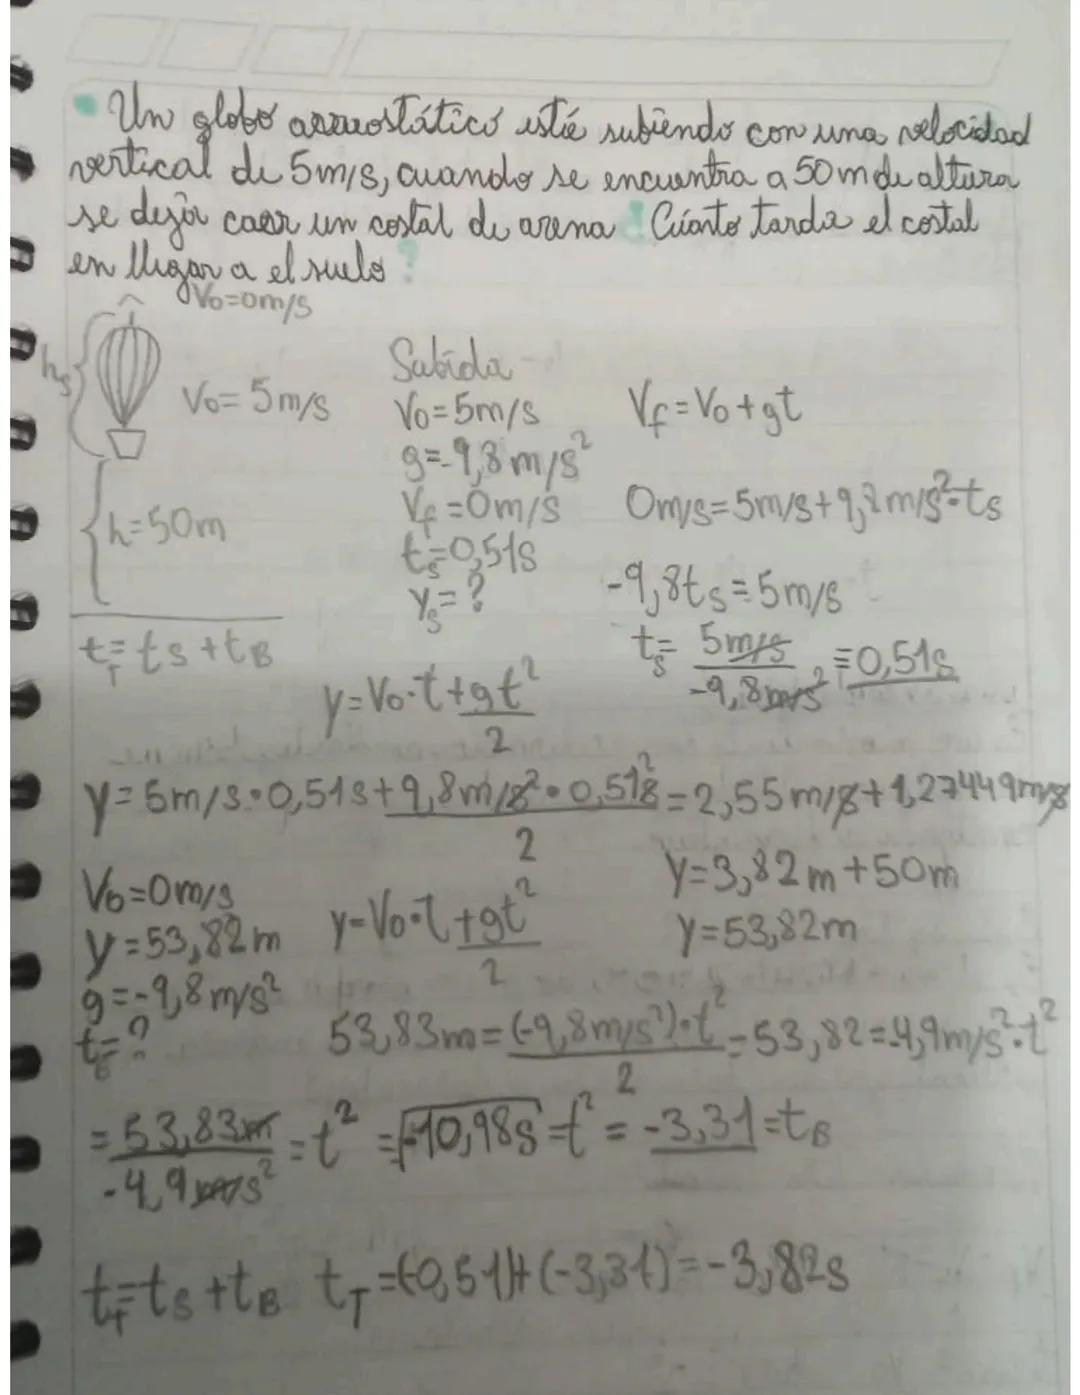 Un globo aerostático está subiendo con una velocidad
vertical de 5m/s, cuando se encuentra a 50m de altura
se dejar caer un costal de arena ¿Cuánto tarda el costal
en llegar a el suelo?
V₀=0m/s
hs
V₀=5m/s
h=50m
t_T=ts+tB
Subida
V₀=5m/s
g=-9,8m/s²
Vf=0m/s
ts=0,51s
ys=?
Vf=V₀+gt
0m/s=5m/s+9,8m/s²·ts
-9,8ts=5m/s
ts=5m/s/-9,8m/s²=0,51s
y=V₀·t+gt²/2
y=5m/s·0,51s+9,8m/s²·0,51s²/2=2,55m/s+1,27449m/s
y=3,82m+50m
y=53,82m
V₀=0m/s
y=53,82m
g=-9,8m/s²
tB=?
y=V₀·t+gt²/2
53,83m=(-9,8m/s²)·t²/2=53,82=-4,9m/s²·t²
=53,83m/-4,9m/s²=t²=√-10,98s=t²=-3,31=tB
t_T=ts+tB t_T=(-0,51)+(-3,31)=-3,82s